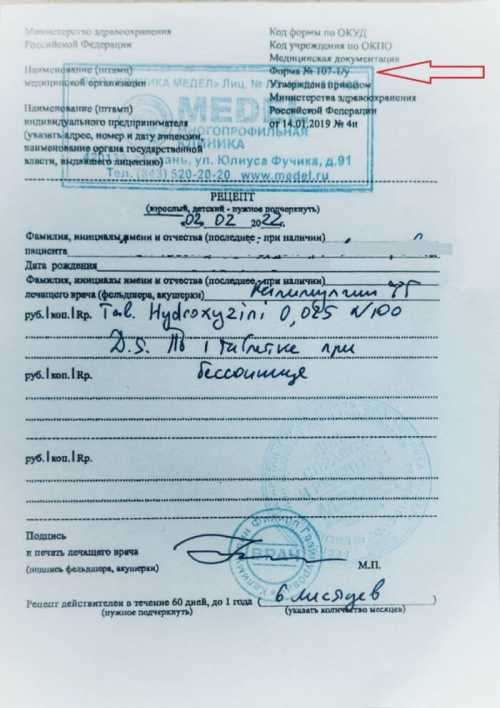 Министерство здравоохранения
Российской Федерации
Наименование (штамп)
медицинской организации
Наименование (штамп)
индивидуального предпринимателя
(указать адрес, номер и дату лицензии,
наименование органа государственной
власти, выдавшего лицензию)
Код формы по ОКУД
Код учреждения по ОКПО
Медицинская документация
Форма № 107-1/у
Утверждена приказом
Министерства здравоохранения
Российской Федерации
от 14.01.2019 № 4н
КЛИНИКА МЕДЕЛ» Лиц. №
MEDEL
МНОГОПРОФИЛЬНАЯ
КЛИНИКА
ул. Юлиуса Фучика, д.91
Тел. (843) 520-20-20 www.medel.ru
РЕЦЕПТ
(взрослый, детский - нужное подчеркнуть)
02 02 2022 г.
Фамилия, инициалы имени и отчества (последнее - при наличии)
пациента
Дата рождения
Фамилия, инициалы имени и отчества (последнее - при наличии)
лечащего врача (фельдшера, акушерки)
руб. коп. Rp. Tab. Hydroxyzini 0,025 N100
D.S. По 1 таблетке при
бессоннице
руб. коп. Rp.
руб. коп. Rp.
Подпись
и печать лечащего врача
(подпись фельдшера, акушерки)
ВРАЧ
М.П.
Рецепт действителен в течение 60 дней, до 1 года (6 месяцев)
(нужное подчеркнуть) (указать количество месяцев)